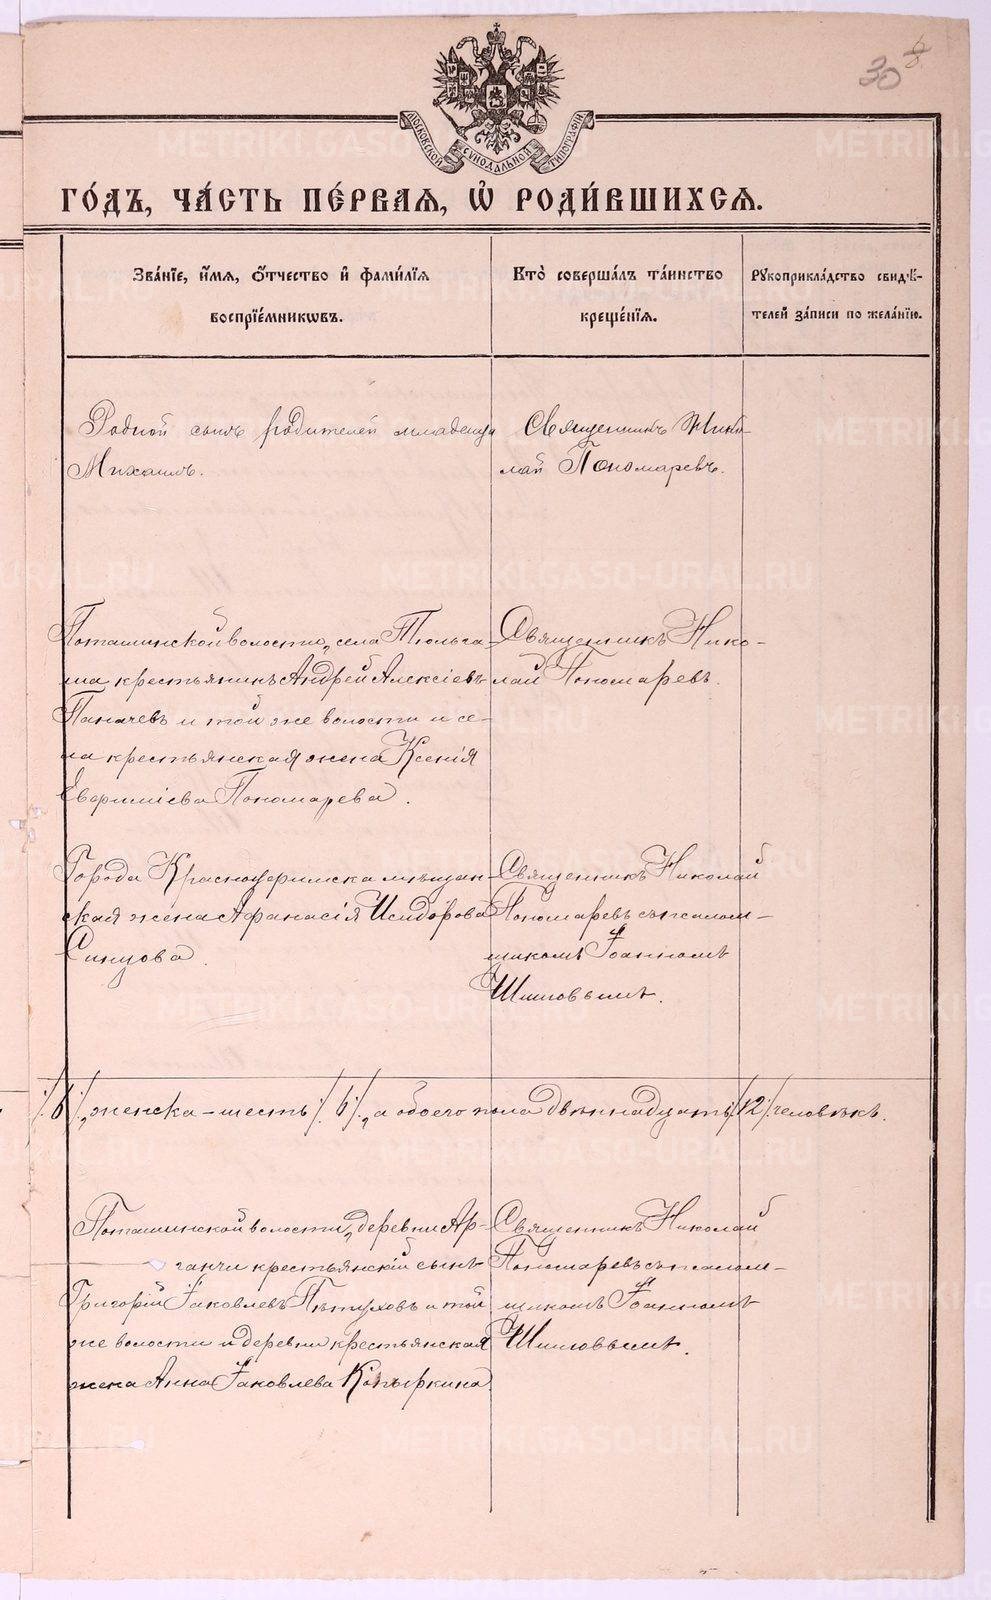 30 8
МОСКОВСКОЙ СѴНОДАЛЬНОЙ ТИПОГРАФІИ
ГО́ДЪ, ЧА́СТЬ ПЕ́РВАЯ, Ѽ РОДИ́ВШИХСѦ.
Зва́нїе, и҆́мѧ, о҆́тчество и҆ фами́лїѧ
воспрїе́мникѡвъ.
Кто̀ соверша́лъ та́инство
креще́нїѧ.
Рꙋкоприкла́дство свидѣ́-
телей за́писи по жела́нїю.
Родной сынъ родителей младенца
Михаилъ.
Священникъ Нико-
лай Пономаревъ.
Поташинской волости, села Тюльга-
ша крестьянинъ Андрей Алексѣевъ
Паначевъ и той же волости и се-
ла крестьянская жена Ксенія
Евфиміева Пономарева.
Священникъ Нико-
лай Пономаревъ.
Города Красноуфимска мѣщан-
ская жена Афанасія Исидорова
Синцова.
Священникъ Николай
Пономаревъ съ псалом-
щикомъ Іоанномъ
Шиловымъ.
/:6:/, женска – шесть /:6:/, а обоего пола двѣннадцать /:12:/ человѣкъ.
Поташинской волости, деревни Ар-
танчи крестьянскій сынъ
Григорій Іаковлевъ Пѣтуховъ и той
же волости и деревни крестьянская
жена Анна Іаковлева Копыркина.
Священникъ Николай
Пономаревъ съ псалом-
щикомъ Іоанномъ
Шиловымъ.
METRIKI.GASO-URAL.RU